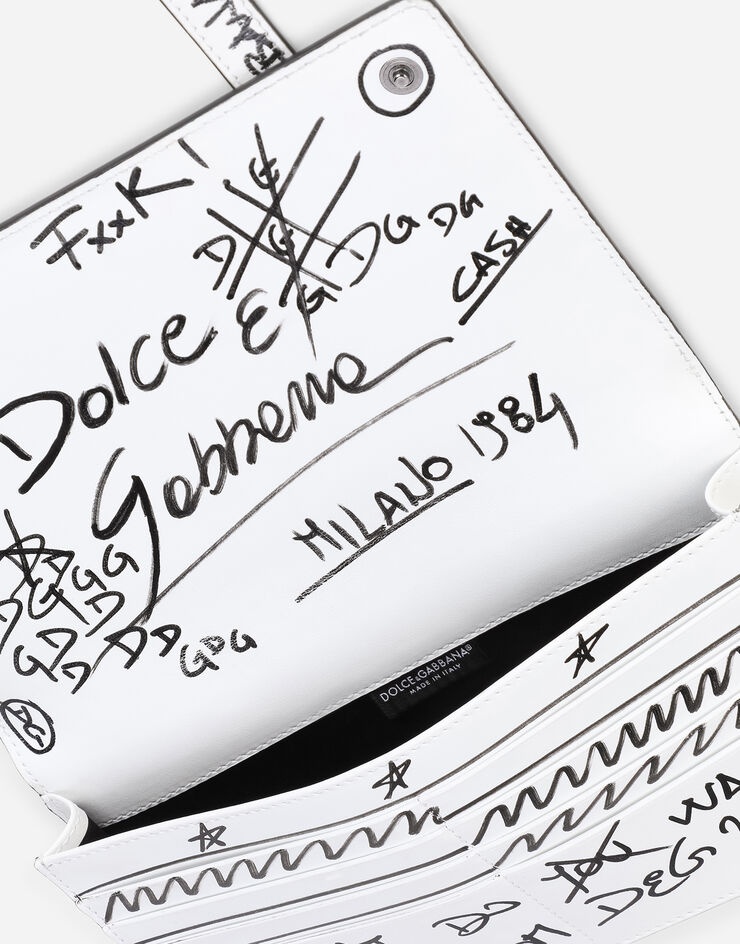 FxxK!
G
D G
G
DG DG
CASH
Dolce &
Gabbana
MILANO 1984
D G G G
G D D
D D D
GDG
DG
DOLCE&GABBANA®
MADE IN ITALY
DG
D&G